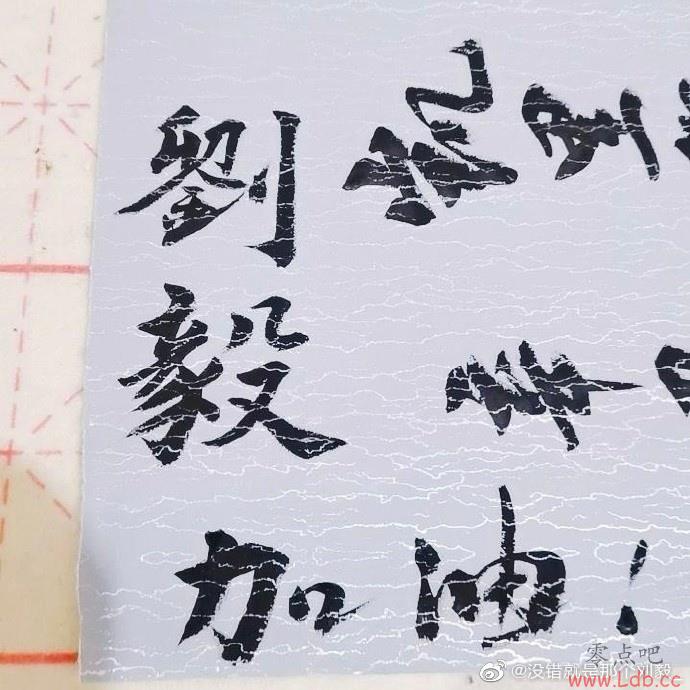 劉
毅
加油!
零点吧
@没错就是那个刘毅
www.Ldb.cc